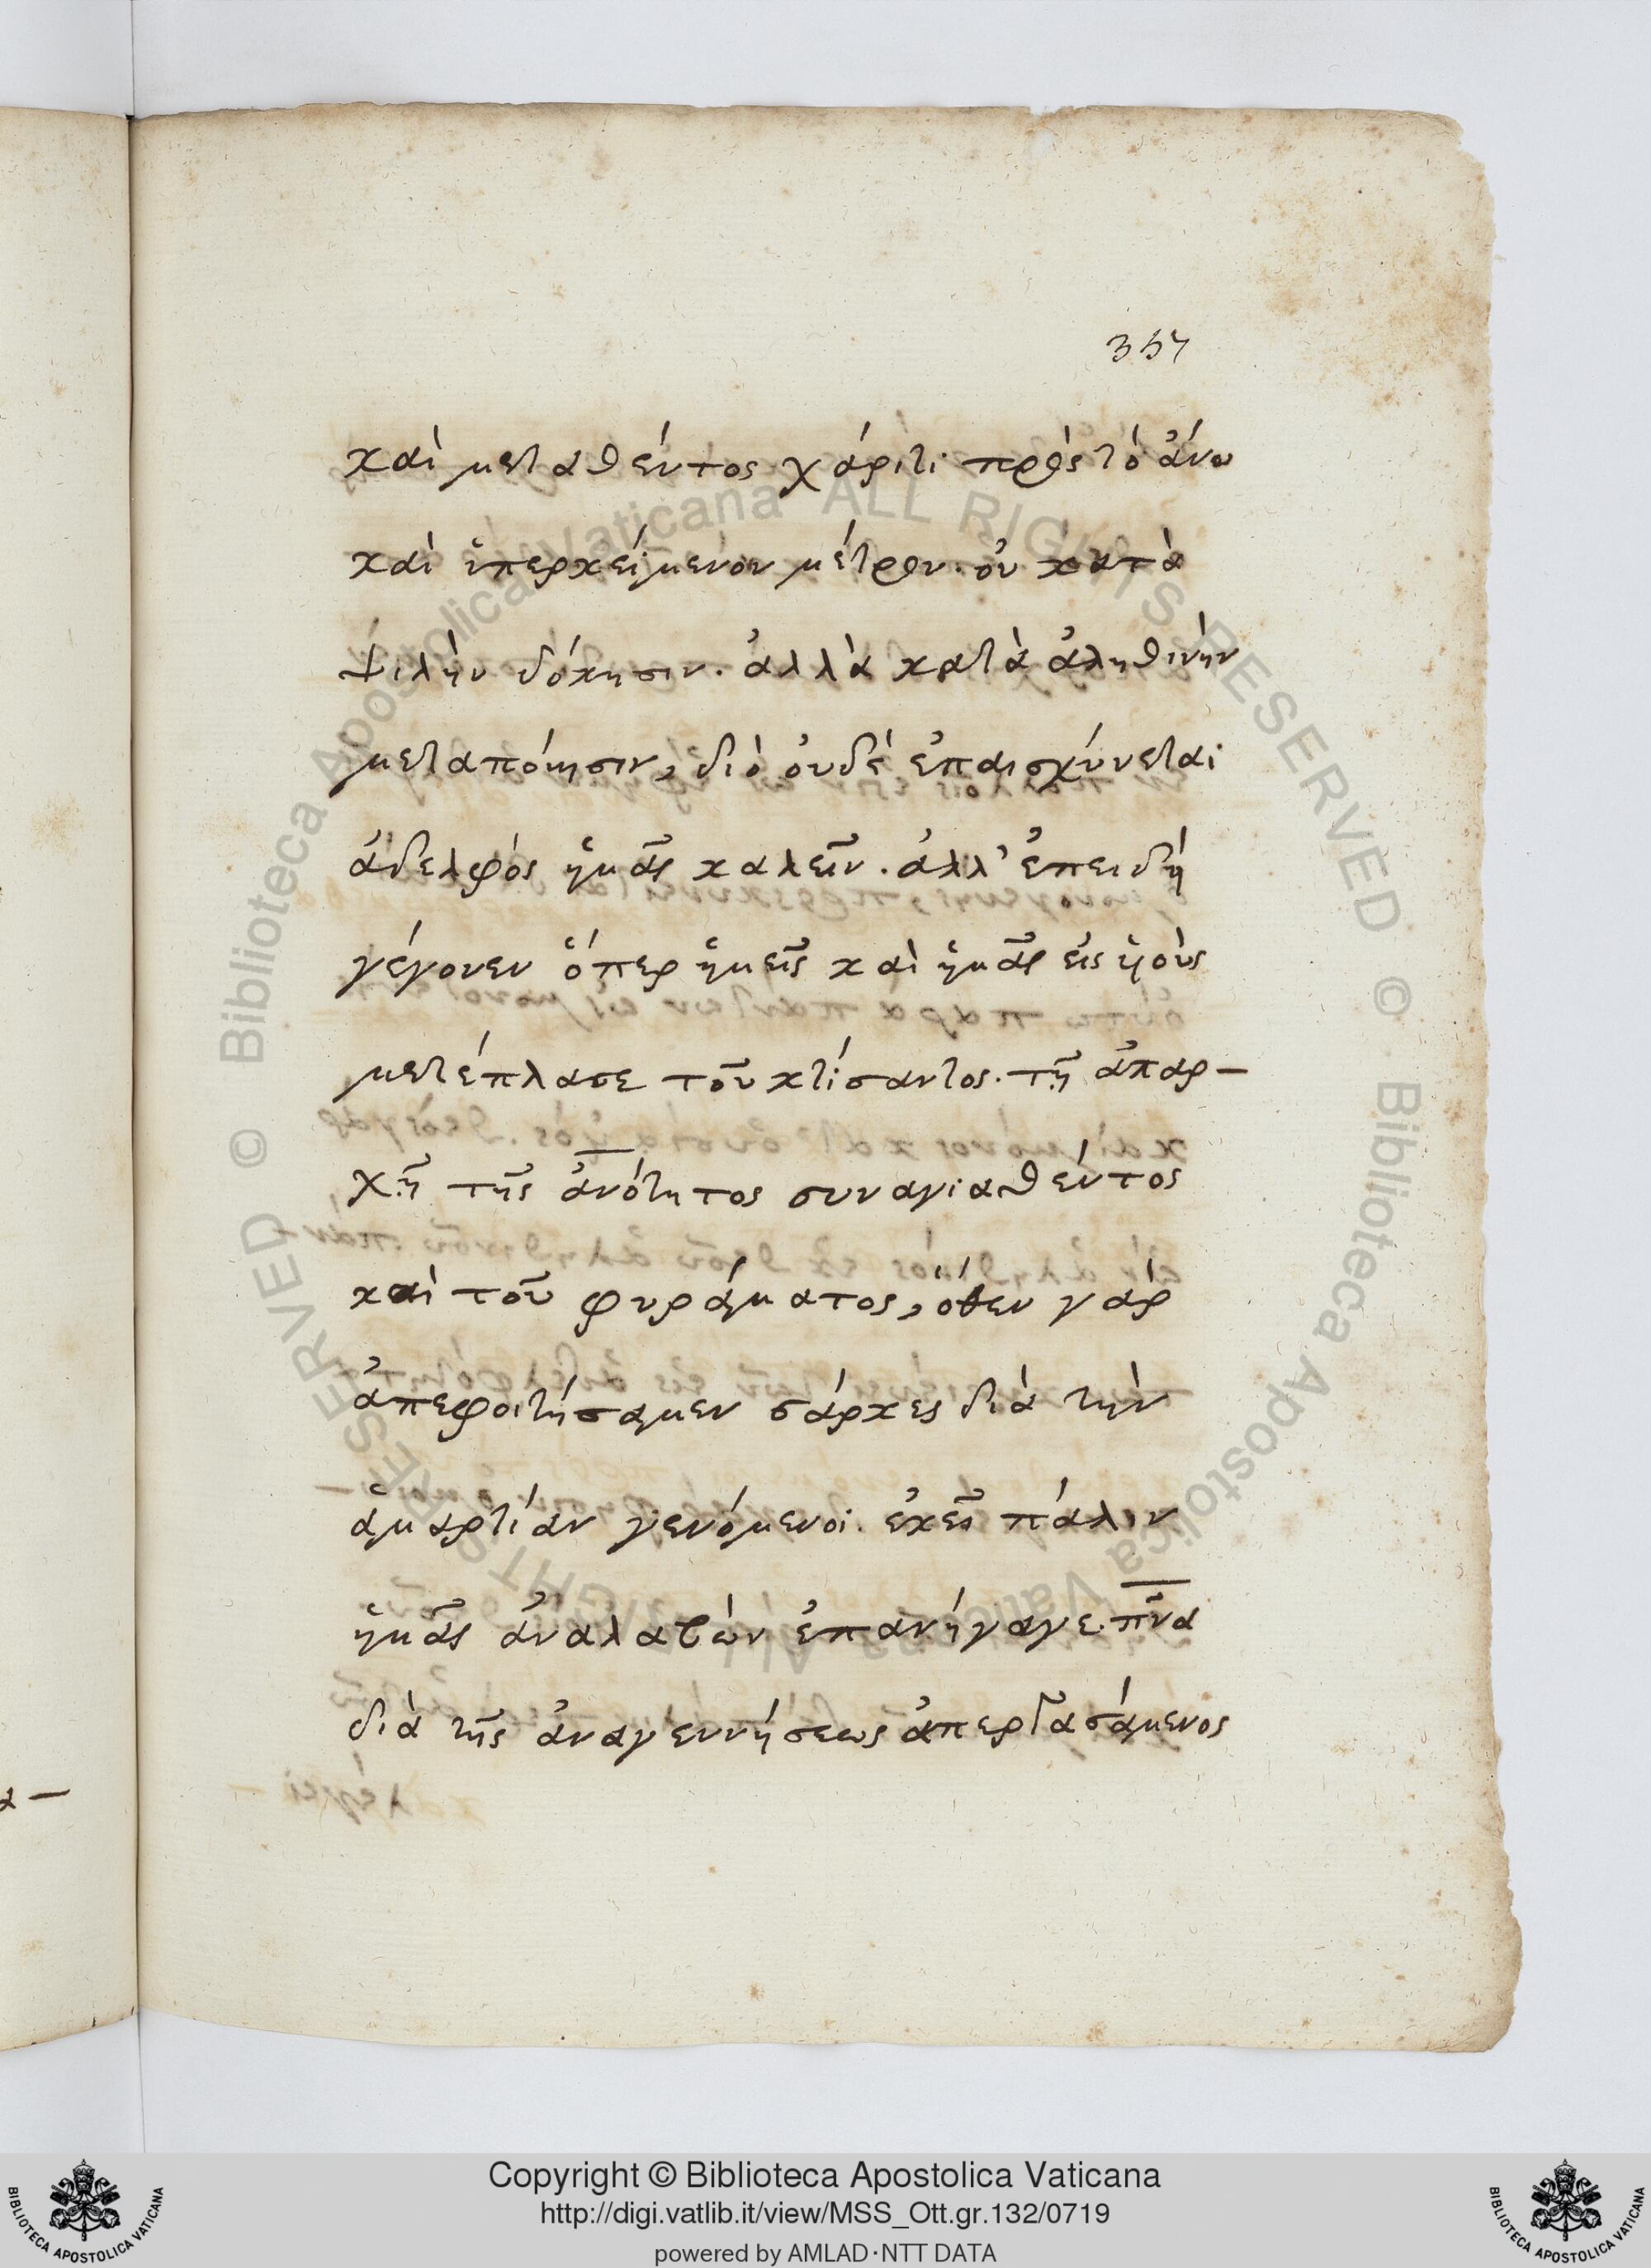 357
καὶ μεταθέντος χάριτι πρὸς τὸ ἄνω
καὶ ὑπερκείμενον μέτρον. οὐ κατὰ
ψιλὴν δόκησιν. ἀλλὰ κατὰ ἀληθινὴν
μεταποίησιν, διὸ οὐδὲ ἐπαισχύνεται
ἀδελφὸς ἡμᾶς καλεῖν. ἀλλ' ἐπειδὴ
γέγονεν ὅπερ ἡμεῖς καὶ ἡμᾶς εἰς υἱοὺς
μετέπλασε τοῦ κτίσαντος. τῇ ἀπαρ-
χῇ τῆς ἀνότητος συναγιαθέντος
καὶ τοῦ φυράματος, ὅθεν γὰρ
ἀπεφοιτήσαμεν σάρκες διὰ τὴν
ἁμαρτίαν γενόμενοι. ἐκεῖ πάλιν
ἡμᾶς ἀναλαβὼν ἐπανήγαγε. πνα
διὰ τῆς ἀναγεννήσεως ἀπεργασάμενος
Copyright © Biblioteca Apostolica Vaticana
http://digi.vatlib.it/view/MSS_Ott.gr.132/0719
powered by AMLAD·NTT DATA
BIBLIOTECA APOSTOLICA VATICANA
BIBLIOTECA APOSTOLICA VATICANA
© Biblioteca Apostolica Vaticana ALL RIGHTS RESERVED © Biblioteca Apostolica Vaticana ALL RIGHTS RESERVED